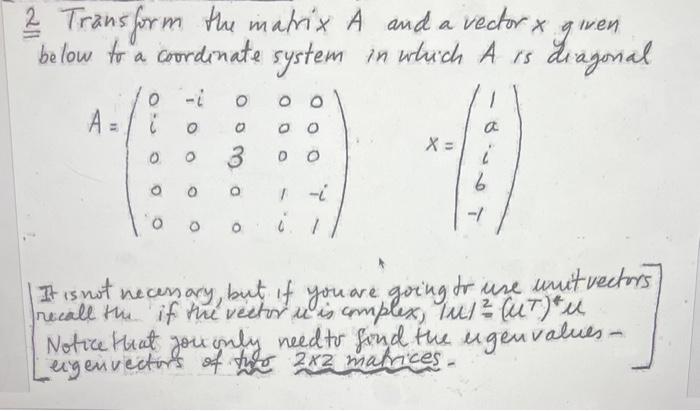 2 Transform the matrix A and a vector x given
below to a coordinate system in which A is diagonal
A = ( 0 -i 0 0 0
i 0 0 0 0
0 0 3 0 0
0 0 0 1 -i
0 0 0 i 1 )
x = ( 1
a
i
b
-1 )
[It is not necessary, but if you are going to use unit vectors
recall the if the vector u is complex, |u|² = (uᵀ)* u
Notice that you only need to find the eigenvalues -
eigenvectors of two 2x2 matrices.]